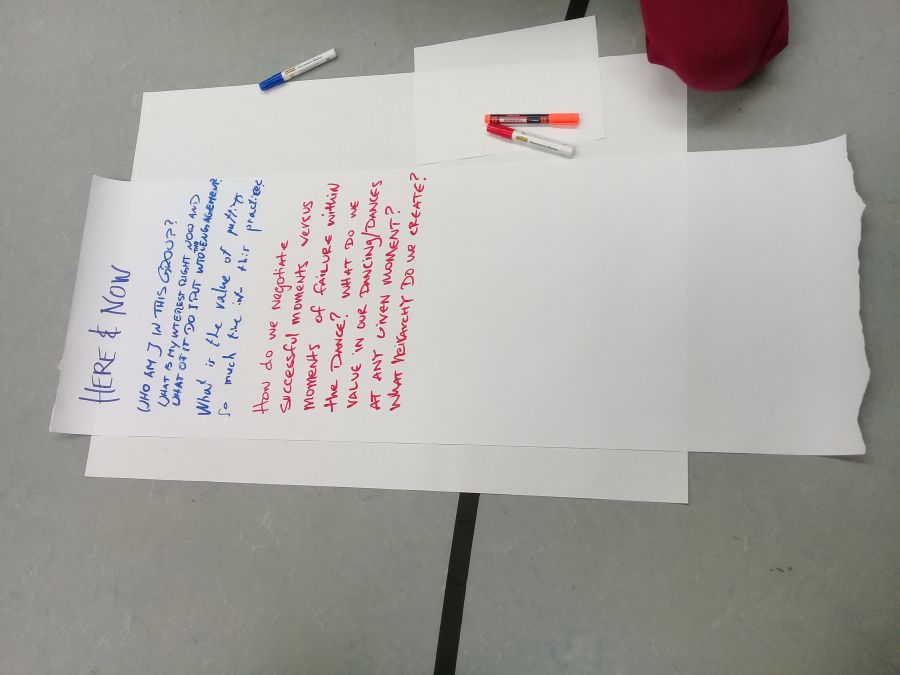 HERE & NOW
WHO AM I IN THIS GROUP?
WHAT IS MY INTEREST RIGHT NOW AND
WHAT OF IT DO I PUT INTO THE ENGAGEMENT?
What is the value of putting
so much time into this practice?
How do we negotiate
successful moments versus
moments of failure within
the DANCE? WHAT DO WE
VALUE IN OUR DANCING/DANCES
AT ANY GIVEN MOMENT?
WHAT HEIRARCHY DO WE CREATE?